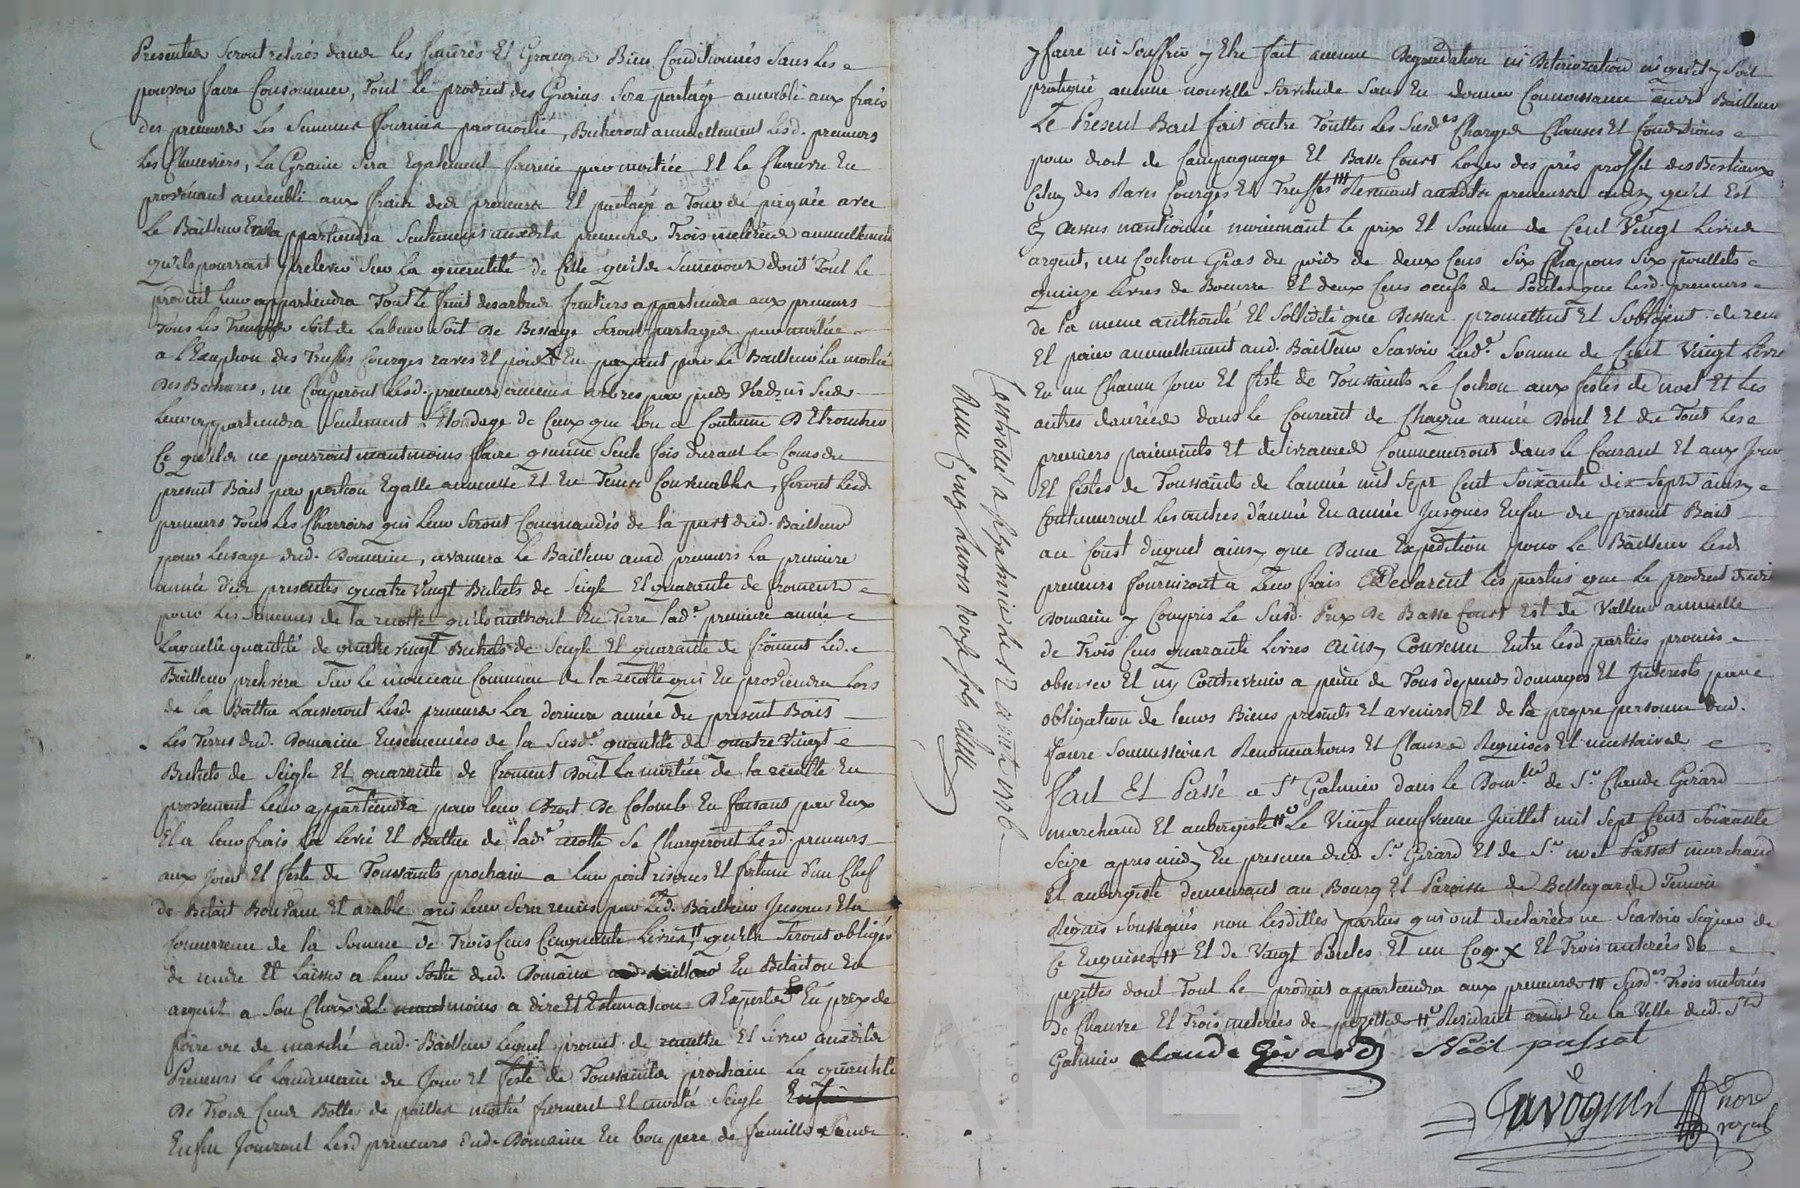 Presentes seront retirés dans les fenieres Et Granges Bien Conditionnés Sans les
pouvoir faire Consommer, Tout le produit des Grains Sera partagé ameubli aux frais
des preneurs les Semences fournies par moitié, Becheront annuellement lesd. preneurs
les Cheneviers, la Graine sera Egalement fournie par moitiée Et le Chanvre En
provenant ameubli aux fraix desd preneurs Et partagé a Tour de pugnée avec
Le Bailleur appartiendra Seulement auxdits preneurs Trois meterées annuellement
qu'ils pourront prelever Sur la quantité de Celle qu'ils Semeront dont Tout le
produit leur appartiendra Tout le fruit des arbres fruitiers appartiendra aux preneurs
Tous les Treuffes Soit de Labeur Soit de Bessage Seront partagés par moitiée
a l'Exception des Truffes Courges raves Et pois En payant par le Bailleur la moitié
des Bessures, ne Couperont lesd. preneurs aucuns arbres par pied Verd ni Secs
Leur appartiendra Seulement l'Elondage de Ceux que l'on a Coutume D'Etroncher
Ce qu'ils ne pourront neantmoins faire qu'une Seule fois durant le Cours du
present Bail par portion Egalle annuelle Et En Tems Convenables, feront lesd.
preneurs Tous les Charroirs qui leur Seront Commandés de la part dud. Bailleur
pour l'usage dud. Domaine, avancera le Bailleur auxd preneurs la premiere
année d'ici presentes quatre Vingt Bichets de Seigle Et quarante de froment
pour les Semences de la recolte qu'ils mettront En Terre lad.e premiere année
Laquelle quantité de quatre vingt Bichets de Seigle Et quarante de froment Led.
Bailleur prelevera Sur le monceau Commun de la recolte qui En proviendra lors
de la Battue Laisseront lesd. preneurs La derniere année du present Bail
Les Terres dud. Domaine Ensemencées de la Susd.e quantité de quatre Vingt
Bichets de Seigle Et quarante de froment Dont La moitiée de la recolte En
provenant leur appartiendra pour leur Droit De Colomb En faisant par Eux
Et a leur frais la levée Et Battue de lad.e recolte Se Chargeront Lesd. preneurs
aux jour Et feste de Toussaints prochain a leur peril risques Et fortune d'un Chef
de Betail Bouvine Et arable qui leur Sera remis par Led. Bailleur Jusques Et a
concurrence de la Somme de Trois Cens Cinquante Livres, qu'ils Seront obligés
de rendre Et laisser a leur Sortie dud. Domaine En Betail ou En
argent a Son Choix a dire Et Estimation D'Experts En prix de
foire ou de marché aud. Bailleur Lequel promet de remettre Et livrer auxdits
Preneurs le lendemain du Jour Et feste de Toussaints prochain La quantité
De Trois Cens Bottes de pailles moitié froment Et moitié Seigle
Enfin Jouiront lesd preneurs dud. Domaine En bon pere de famille Sans
y faire ni Souffrir y Etre fait aucune Degradation ni Deteriozation ni qu'il y Soit
pratiqué aucune nouvelle Servitude Sans En donner Connoissance aud. Bailleur
Le Present Bail fait outre Touttes Les Susd.es Charges Clauses Et Conditions
pour droit de Compagnage Et Basse Court Loyer des près proffit des Bestiaux
Celuy des Raves Courges Et Truffes Revenant auxdits preneurs ainsy qu'il Est
cy dessus mentionné moienant le prix Et Somme de Cent Vingt Livres
argent, un Cochon Gras du poids de deux Cens Six Chapons Six poullets
quinze Livres de Beurre Et deux Cens oeufs de Poules que Lesd. preneurs
de la meme authorité Et Sollidité que Dessus promettent Et S'obligent de rendre
Et paier annuellement aud. Bailleur Scavoir Lad.e Somme de Cent Vingt Livres
En un Chacun Jour Et feste de Toussaints Le Cochon aux festes de noel Et les
autres danrées dans le Courant de Chaque année Dont Et du Tout Les
premiers paiements Et delivrances Commenceront dans le Courant Et aux Jour
Et festes de Toussaints de l'année mil Sept Cent Soixante dix Sept ainsy
Continueront les autres d'année En année Jusques Enfin du present Bail
au Coust duquel ainsy que d'une Expedition pour le Bailleur Lesd
preneurs fourniront a Leur frais Declarent les parties que le produit dud.
Domaine y Compris le Susd. Prix De Basse Court Est de Valleur annuelle
de Trois Cens quarante Livres ainsy Convenu Entre Lesd parties promis
observer Et ny Contrevenir a peine de Tous depens domages Et Interests par
obligation de leurs Biens presents Et avenirs Et de la propre personne dud.
Favre Soumissions Renonciations Et Clauses Requises Et necessaires
Fait Et Passé a St Galmier dans le Dom.lle de S.r Claude Girard
marchand Et aubergiste Le Vingt neufvieme Juillet mil Sept Cens Soixante
Seize apres midy En presence dud. S.r Girard Et de S.r noel Passot marchand
Et aubergiste demeurant au Bourg Et Paroisse de Bellegarde Temoins
Requis soussignés non Lesdittes parties qui ont declarées ne Scavoir Signer de
Ce Enquises Et de Vingt Poules Et un Coq X Et Trois meterées de
pezettes dont Tout le produit appartiendra aux preneurs Susd.es Trois meterées
de Chanvre Et Trois meterées de pezettes Residant En la Ville dud. St
Galmier Claude Girard Noël passat
Ravoguet nore
royal
Controllé a St galmier le 12 aoust 1776